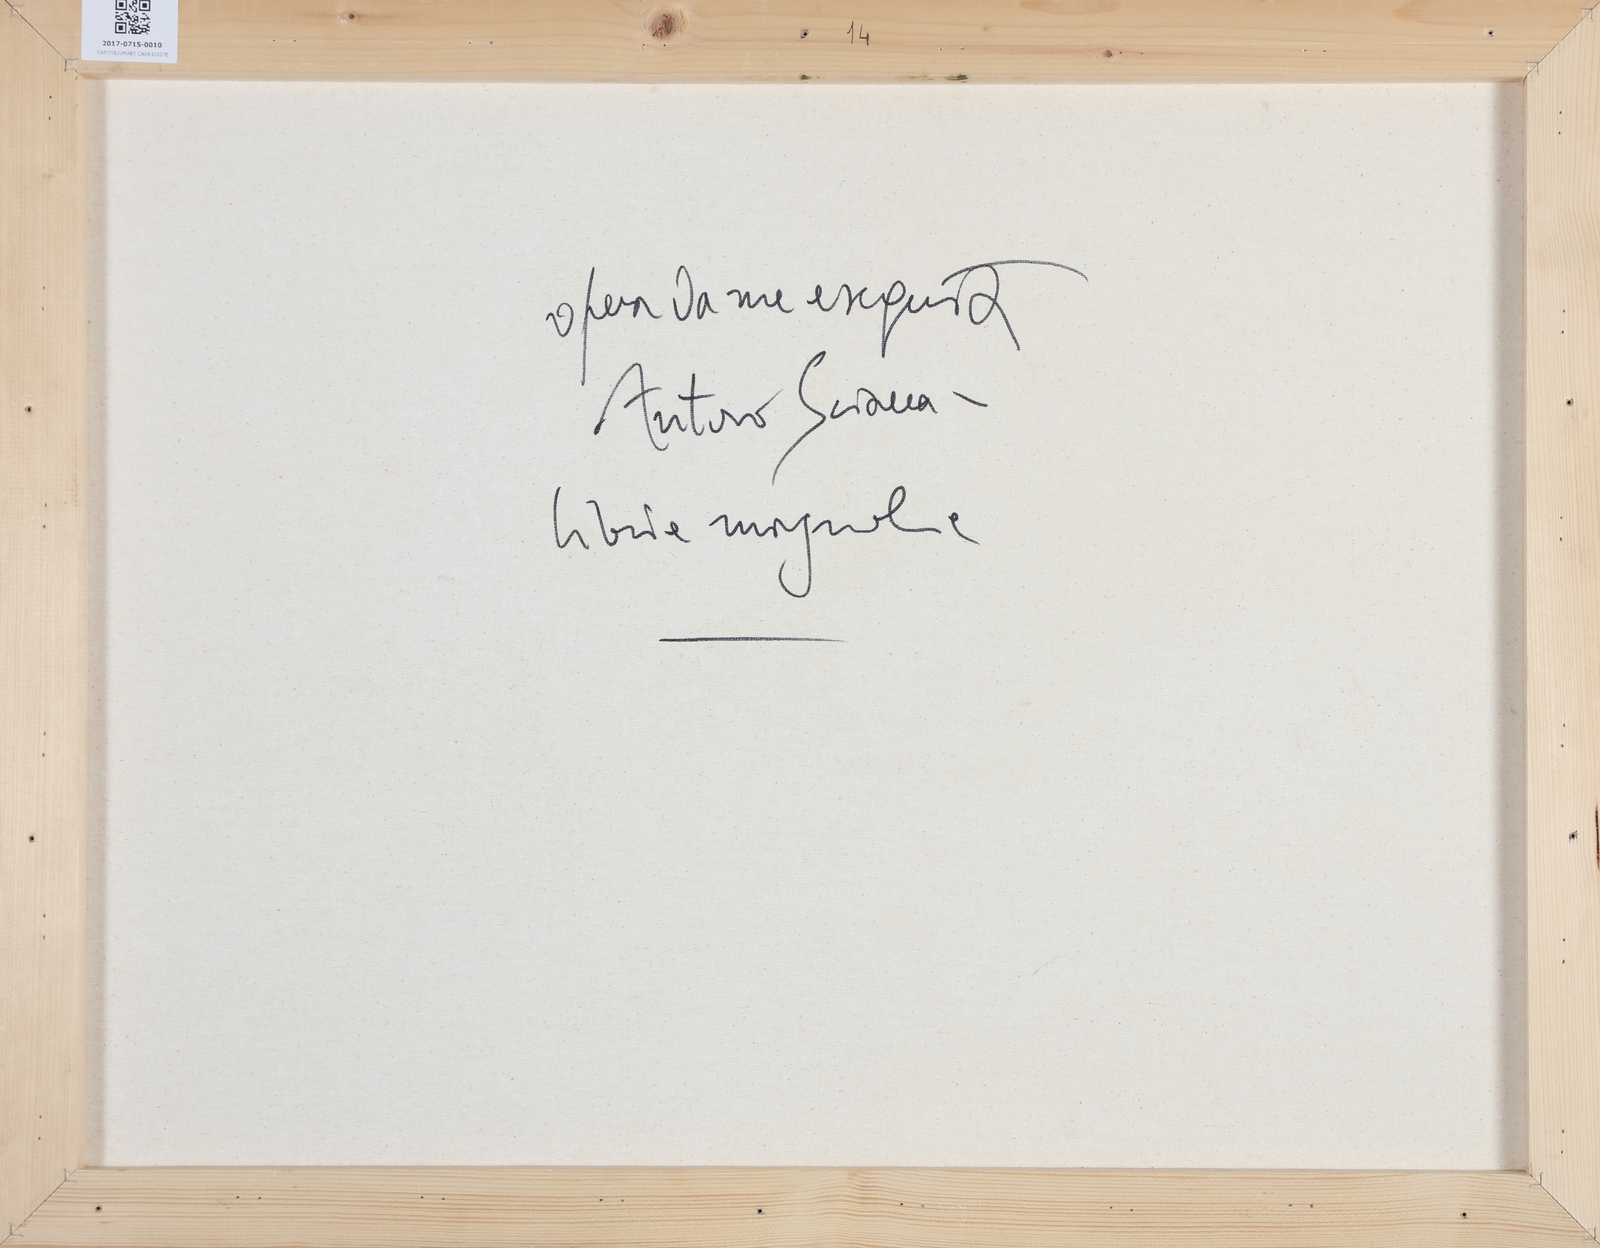 2017-0715-0010
CAPITOLIUMART CASA D'ASTE
14
opera da me eseguita
Antonio Sciacca
librie magnolie